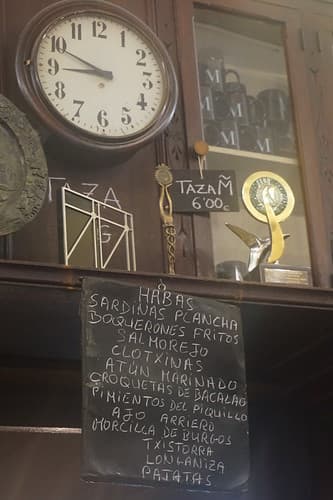 12
1
2
3
4
5
6
7
8
9
10
11
M
M
M
M
M
TAZA
G
TAZA Ñ
6'00€
HABAS
SARDINAS PLANCHA
BOQUERONES FRITOS
SALMOREJO
CLOTXINAS
ATÚN MARINADO
CROQUETAS DE BACALAO
PIMIENTOS DEL PIQUILLO
AJO ARRIERO
MORCILLA DE BURGOS
TXISTORRA
LONGANIZA
PATATAS